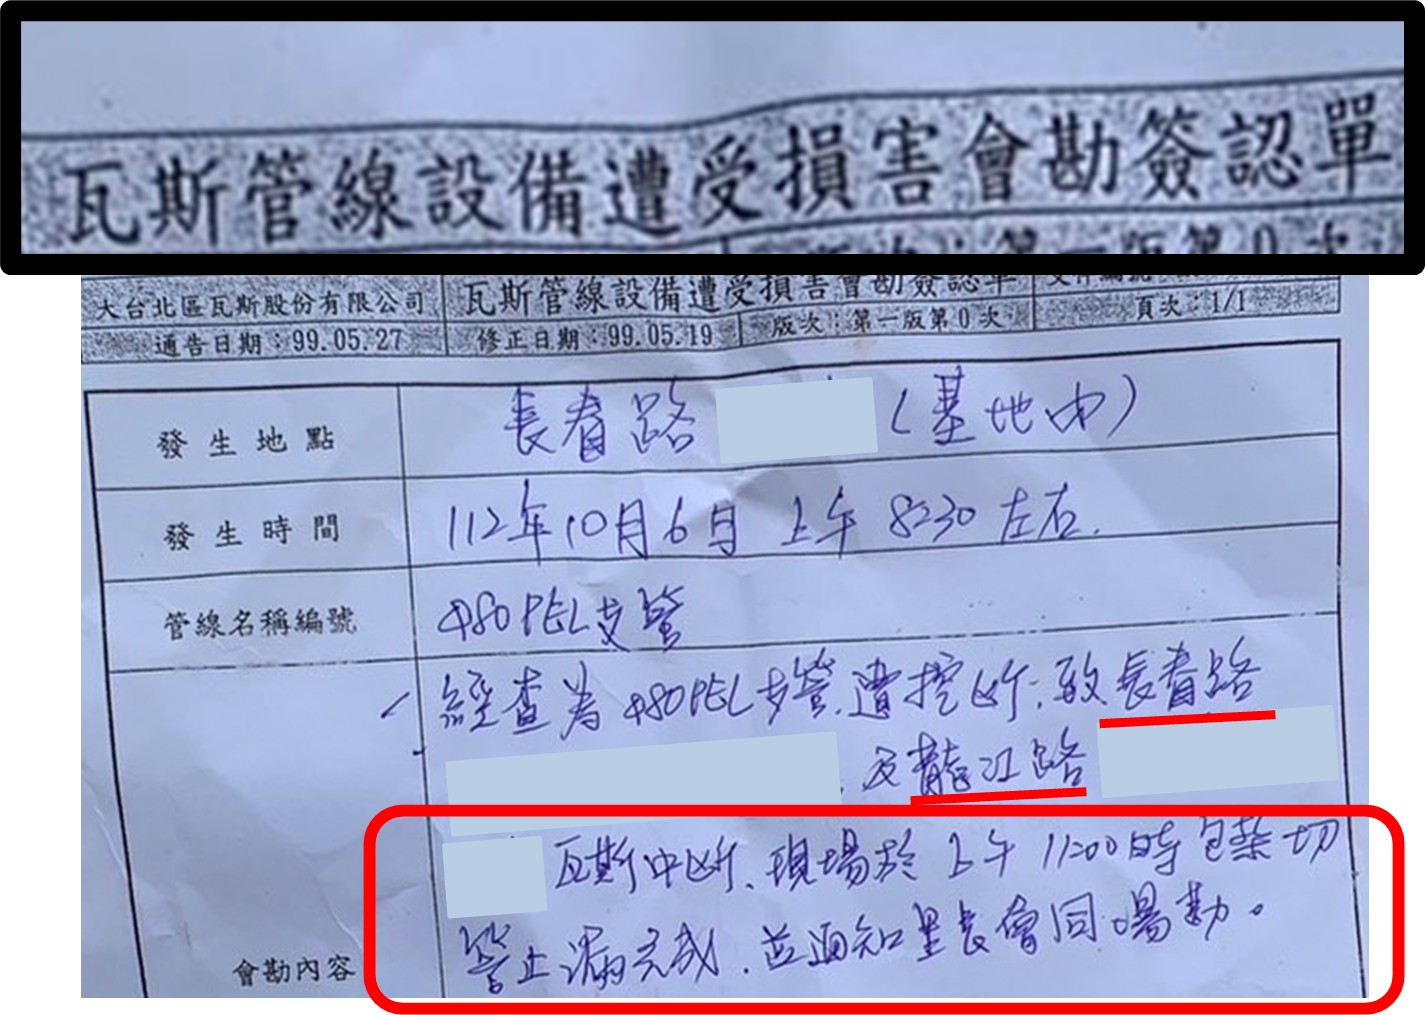 瓦斯管線設備遭受損害會勘簽認單
版次：第一版第0次
大台北區瓦斯股份有限公司 瓦斯管線設備遭受損害會勘簽認單 文件編號
通告日期：99.05.27 修正日期：99.05.19 版次：第一版第0次 頁次：1/1
發生地點 長春路 (基地內)
發生時間 112年10月6日 上午 8:30 左右.
管線名稱編號 φ80PEL支管
經查為φ80PEL支管.遭挖斷.致長春路
及龍江路
瓦斯中斷.現場於上午11:00時包紮切
管止漏完成.並通知里長會同場勘。
會勘內容